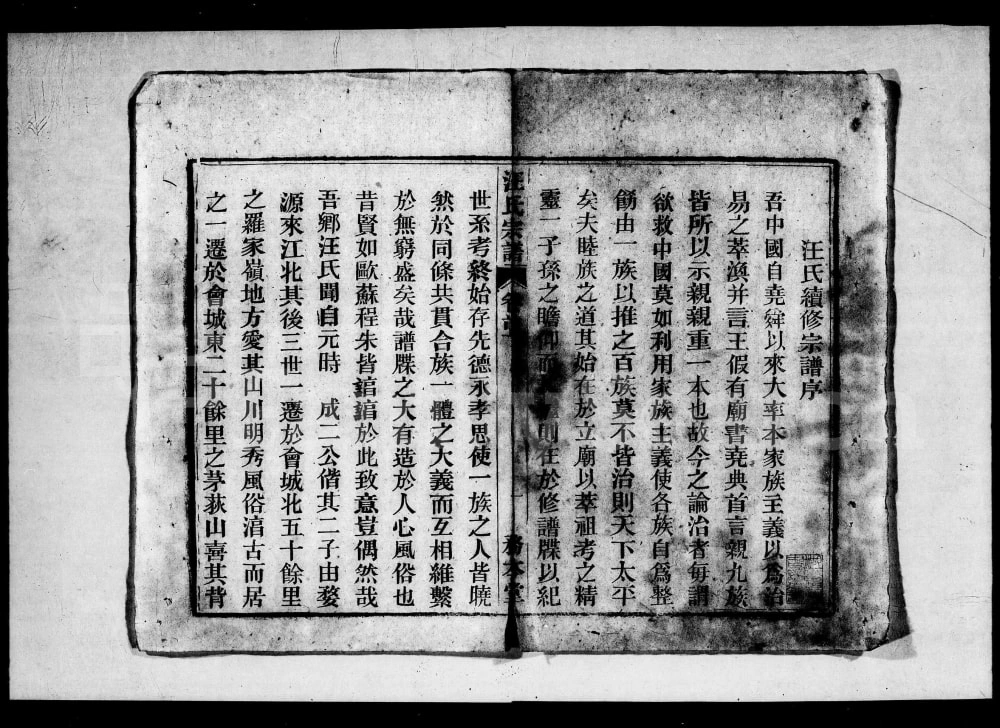 汪氏續修宗譜序
吾中國自堯舜以來大率本家族主義以爲治
易之萃渙并言王假有廟書堯典首言親九族
皆所以示親親重一本也故今之論治者每謂
欲救中國莫如利用家族主義使各族自爲整
飭由一族以推之百族莫不皆治則天下太平
矣夫睦族之道其始在於立廟以萃祖考之精
靈一子孫之瞻仰而 則在於修譜牒以紀
汪氏宗譜 卷首 一 務本堂
世系考終始存先德永孝思使一族之人皆曉
然於同條共貫合族一體之大義而互相維繫
於無窮盛矣哉譜牒之大有造於人心風俗也
昔賢如歐蘇程朱皆諳諳於此致意豈偶然哉
吾鄉汪氏聞自元時 成二公偕其二子由婺
源來江北其後三世一遷於會城北五十餘里
之羅家嶺地方愛其山川明秀風俗湻古而居
之一遷於會城東二十餘里之茅荻山喜其背